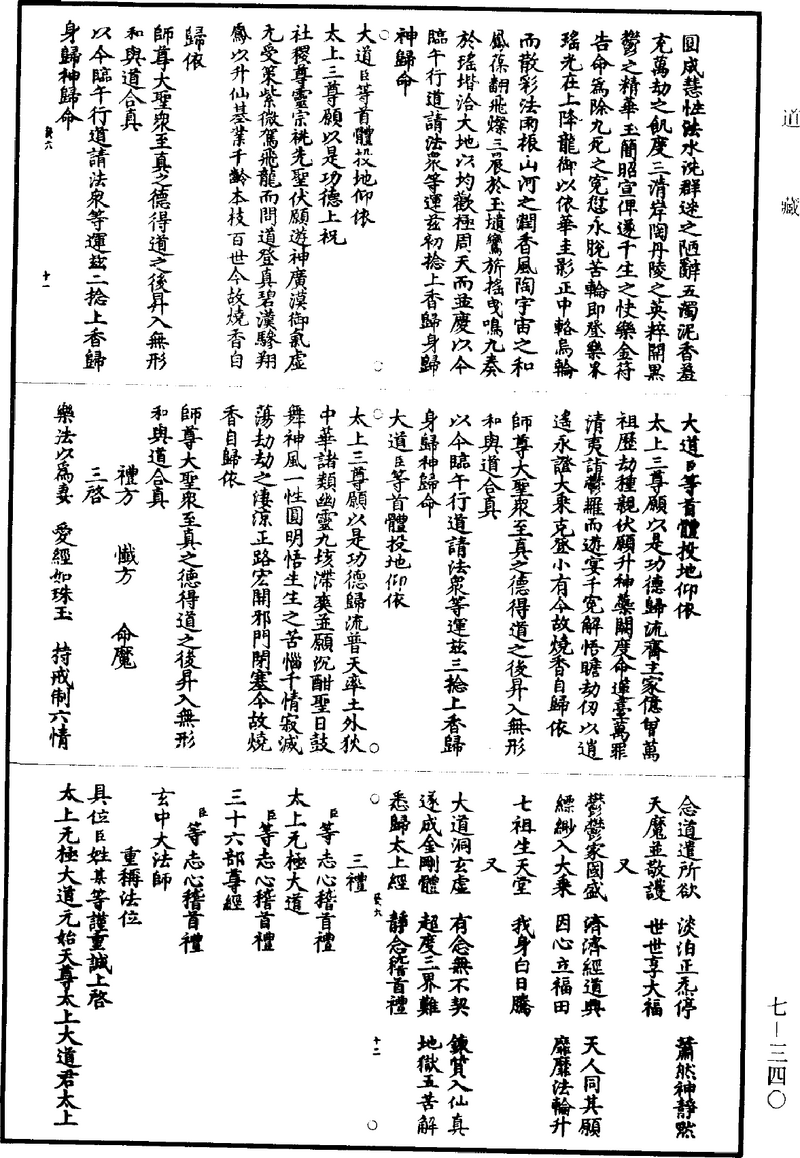 道藏
圓成慧性法水洗群迷之陋辭五濁泥香羞
充萬劫之飢度三清岸陶丹陵之英粹開黑
鬱之精華玉簡昭宣俾遂千生之快樂金符
告命為除九死之寃愆永脫苦輪即登樂界
瑤光在上降龍御以依華圭影正中輅烏輪
而散彩法雨根山河之潤香風陶宇宙之和
鳳葆翻飛燦三晨於玉壝鸞旂搖曳鳴九奏
於瑤堦洽大地以均歡極周天而並慶以今
臨午行道請法眾等運茲初捻上香歸身歸
神歸命
大道臣等首體投地仰依
太上三尊願以是功德上祝
社稷尊靈宗祧先聖伏願遊神廣漠御氣虛
元受策紫微駕飛龍而問道登真碧漢驂翔
鳳以升仙基業千齡本枝百世今故燒香自
歸依
師尊大聖眾至真之德得道之後昇入無形
和與道合真
以今臨午行道請法眾等運茲二捻上香歸
身歸神歸命
六
十一
大道臣等首體投地仰依
太上三尊願以是功德歸流齋主家億曾萬
祖歷劫種親伏願升神藥闕度命瓊臺萬罪
清夷詣鬱羅而遊宴千寃解悟瞻劫仞以逍
遙永證大乘克登小有今故燒香自歸依
師尊大聖眾至真之德得道之後昇入無形
和與道合真
以今臨午行道請法眾等運茲三捻上香歸
身歸神歸命
大道臣等首體投地仰依
太上三尊願以是功德歸流普天率土外狄
中華諸類幽靈九垓滯爽並願沉酣聖日鼓
舞神風一性圓明悟生生之苦惱千情寂滅
蕩劫劫之淒涼正路宏開邪門閉塞今故燒
香自歸依
師尊大聖眾至真之德得道之後昇入無形
和與道合真
禮方 懺方 命魔
三啓
樂法以為妻 愛經如珠玉 持戒制六情
念道遣所欲 淡泊正炁停 蕭然神靜默
天魔並敬護 世世享大福
又
鬱鬱家國盛 濟濟經道興 天人同其願
縹緲入大乘 因心立福田 靡靡法輪升
七祖生天堂 我身白日騰
又
大道洞玄虛 有念無不契 鍊質入仙真
遂成金剛體 超度三界難 地獄五苦解
悉歸太上經 靜念稽首禮
六
十二
三禮
臣等志心稽首禮
太上元極大道
臣等志心稽首禮
三十六部尊經
臣等志心稽首禮
玄中大法師
重稱法位
具位臣姓某等謹重誠上啓
太上元極大道元始天尊太上大道君太上
七—三四〇